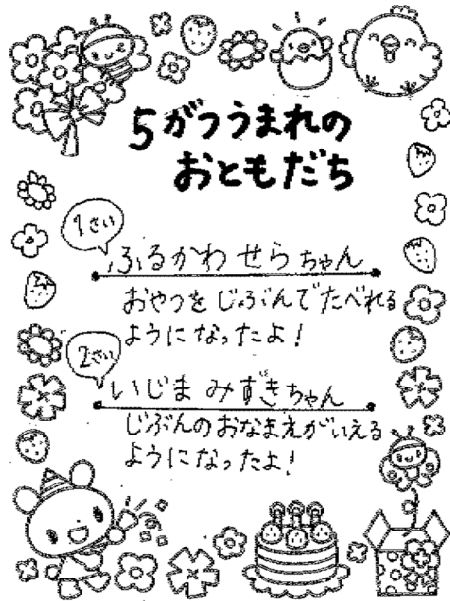 5がつうまれの
おともだち
1さい
ふるかわ せらちゃん
おやつを じぶんで たべれる
ようになったよ!
2さい
いじま みずきちゃん
じぶんのおなまえがいえる
ようになったよ!